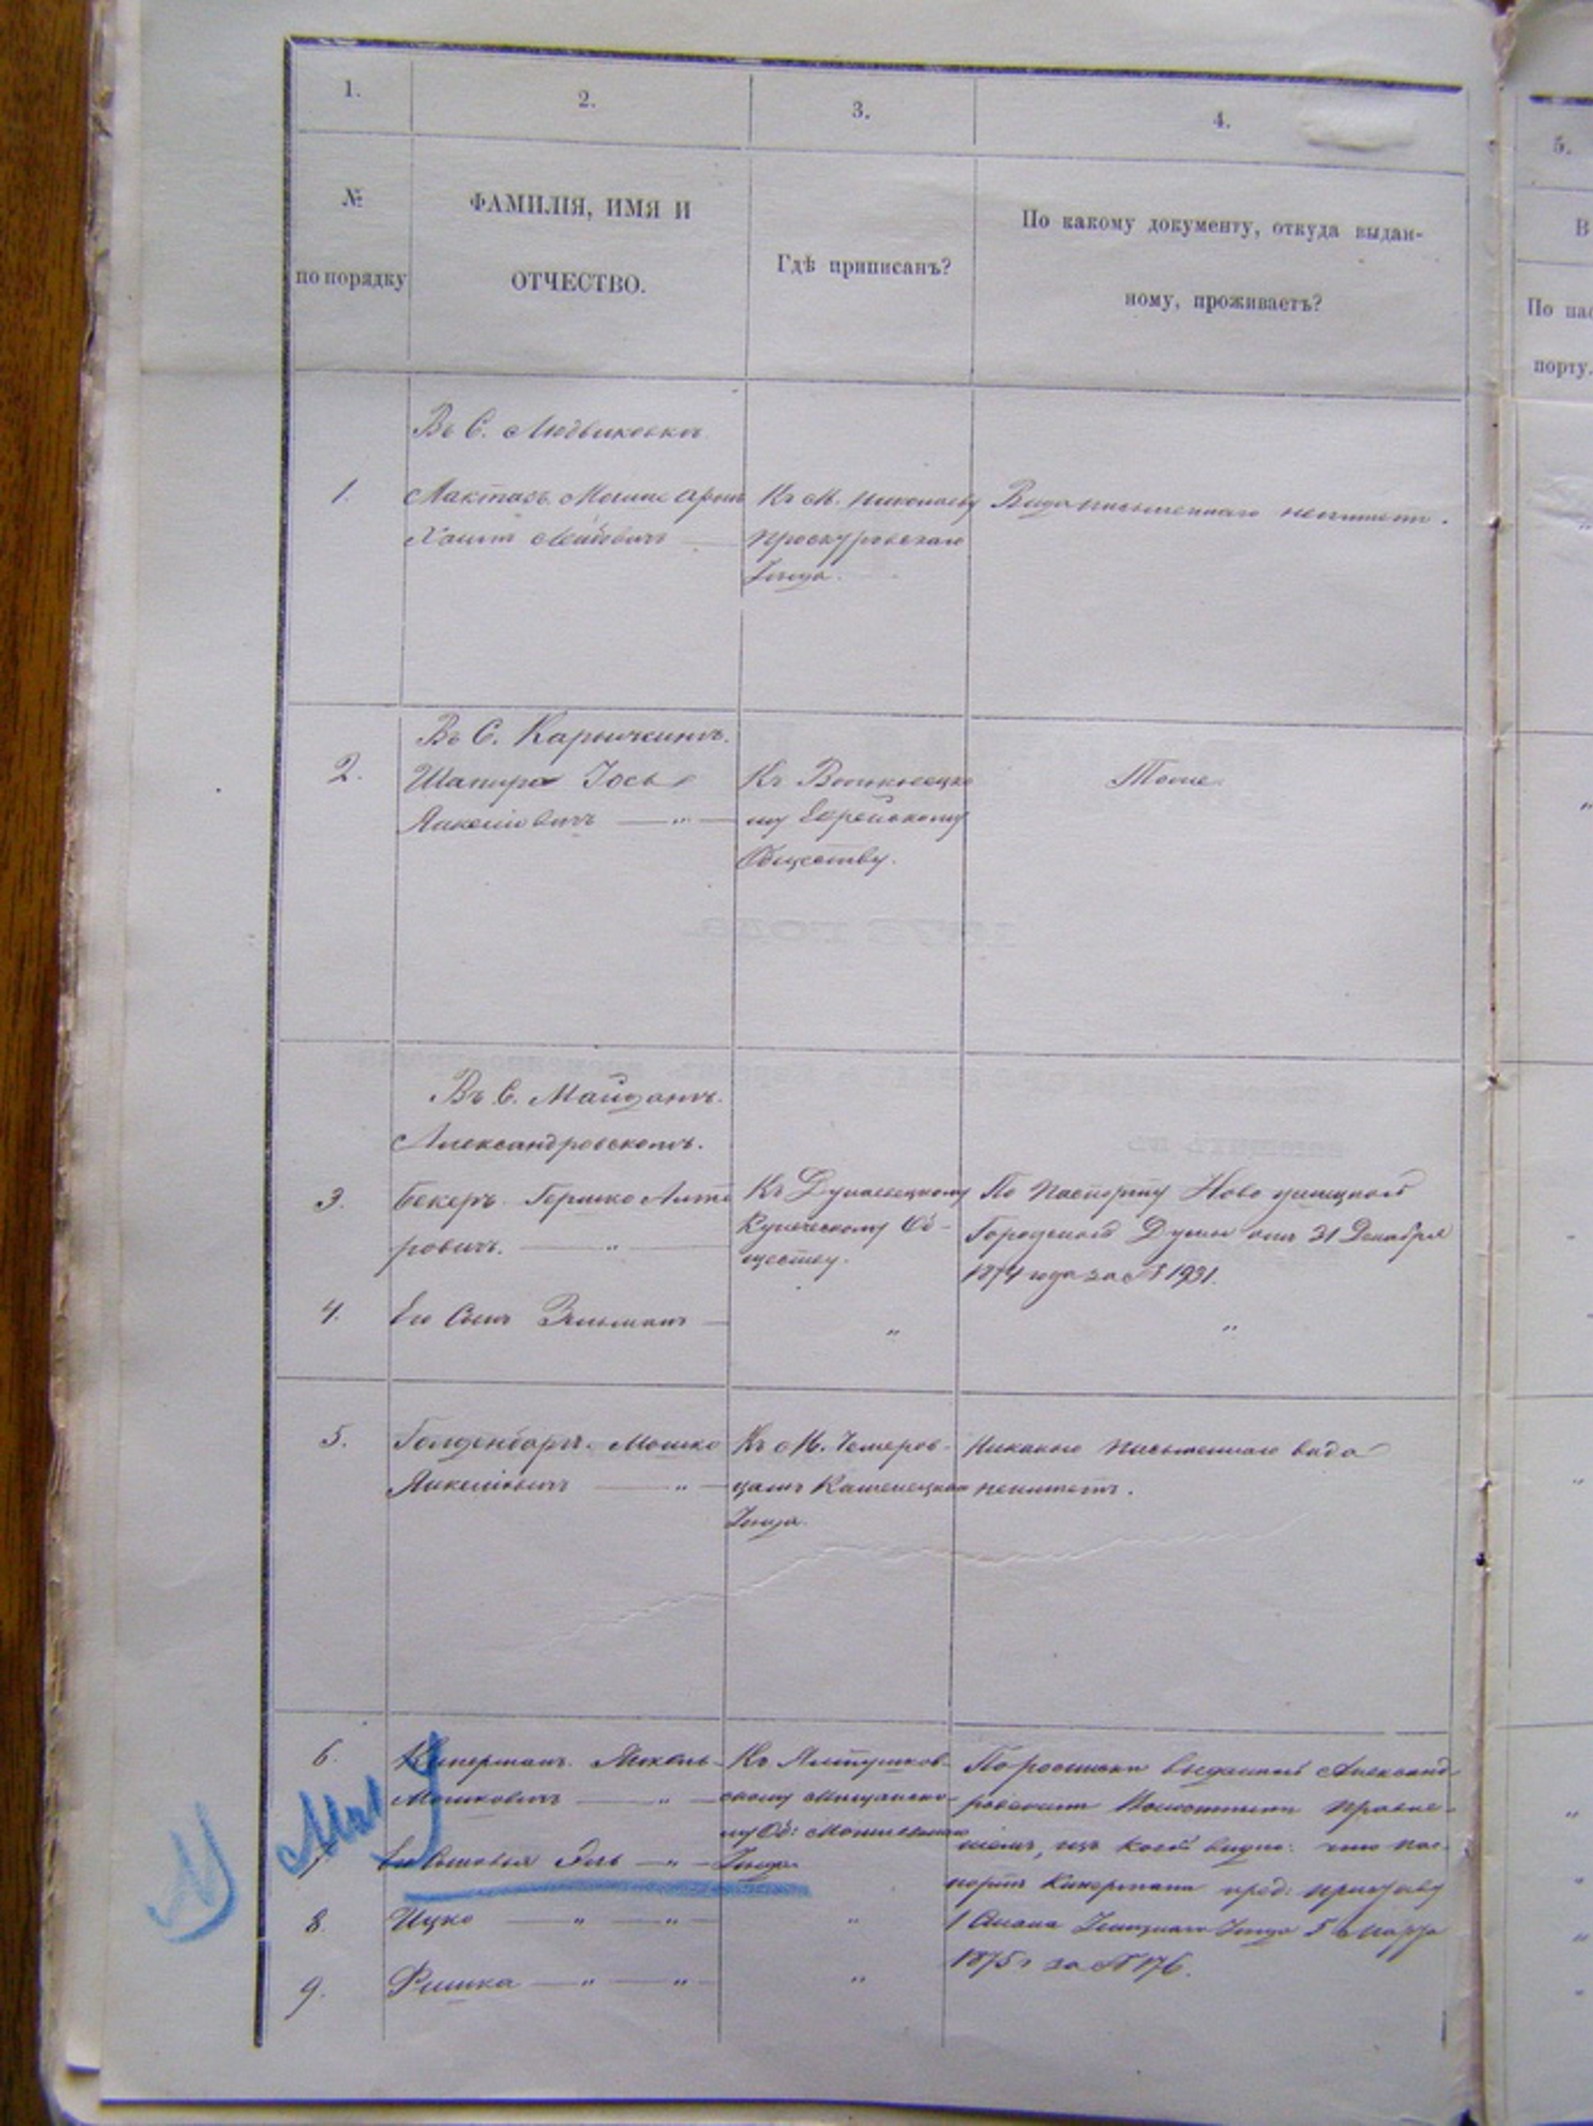 1.
2.
3.
4.
5.
№
по порядку
ФАМИЛІЯ, ИМЯ И
ОТЧЕСТВО.
Гдѣ приписанъ?
По какому документу, откуда выдан-
ному, проживаетъ?
В
По пас
порту.
Въ С. Людвиковкѣ
1.
Хаимъ
Къ М. Николаеву
Проскуровскаго
Уѣзда.
Вида письменнаго неимѣетъ.
Въ С. Карычкинѣ.
2.
Шапиро Іось
Янкелевичъ — „ —
Къ
му Еврейскому
Обществу.
Тоже
Въ С. Майданѣ.
Александровскомъ.
3.
Бекеръ Гершко Лите
ровичъ. — „ —
Къ Дунаевецкому
Купеческому Об-
ществу.
По Паспорту Ново ушицкой
Городской Думы отъ 31 Декабря
1874 года за № 1931.
4.
Его Сынъ Зельманъ —
„
„
5.
Голденбергъ. Мошко
Янкелевичъ — „ —
Къ М. Чемеров-
цамъ Каменецкаго
Уѣзда.
Никакого письменнаго вида
неимѣетъ.
6.
Киперманъ. Янкель-
Мошковичъ — „ —
Къ
скому Мѣщанско-
му Об:
Уѣзда
По росписки выданной Александ-
ровскимъ Волостнымъ Правле-
ніемъ, изъ коей видно: что пас-
портъ Кипермана пред: приставу
1 Стана Ушицкаго Уѣзда 5 Марта
1875 г за № 176.
7
Его Сыновья — „ —
8.
Ицко — „ — „ —
„
9.
— „ — „ —
„